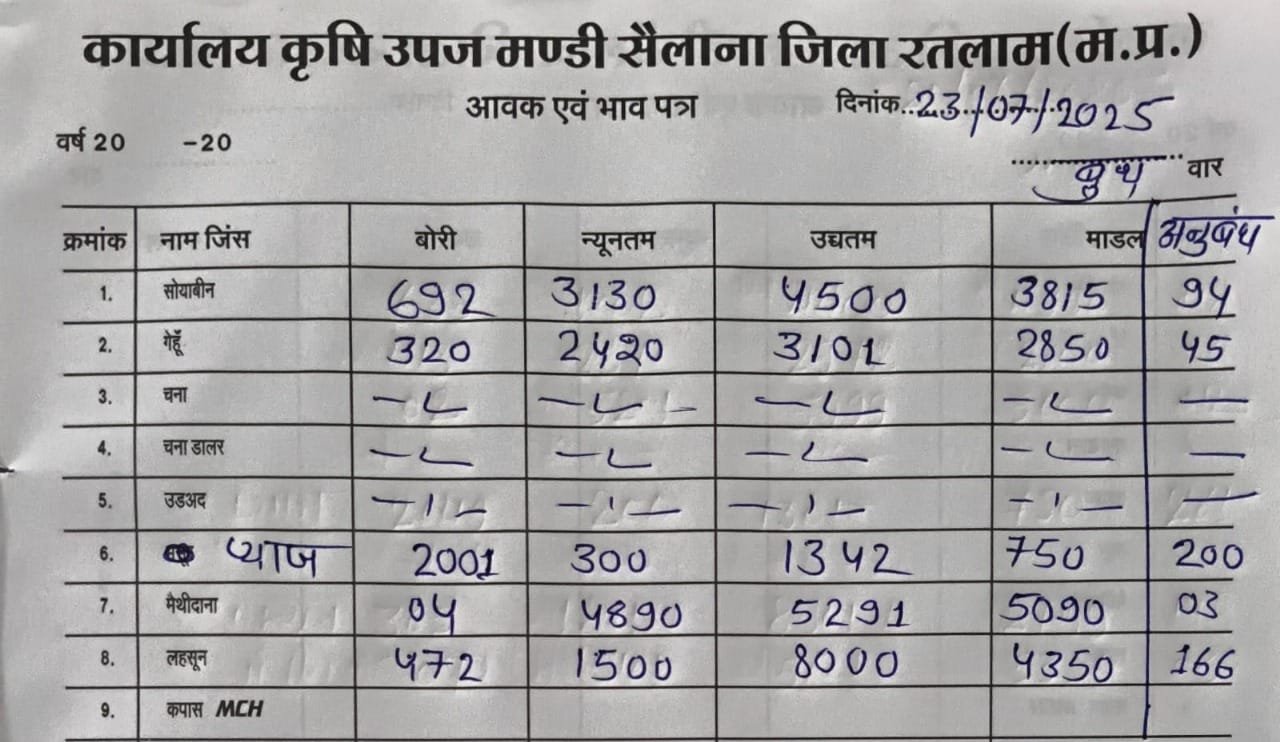 कार्यालय कृषि उपज मण्डी सैलाना जिला रतलाम(म.प्र.)
आवक एवं भाव पत्र दिनांक..23/07/2025
वर्ष 20 -20
बुध वार
क्रमांक नाम जिंस बोरी न्यूनतम उच्चतम माडल अनुबंध
1. सोयाबीन 692 3130 4500 3815 94
2. गेहूँ 320 2420 3101 2850 45
3. चना — — — — —
4. चना डालर — — — — —
5. उडअद — — — — —
6. प्याज 2001 300 1342 750 200
7. मैथीदाना 04 4890 5291 5090 03
8. लहसून 472 1500 8000 4350 166
9. कपास MCH